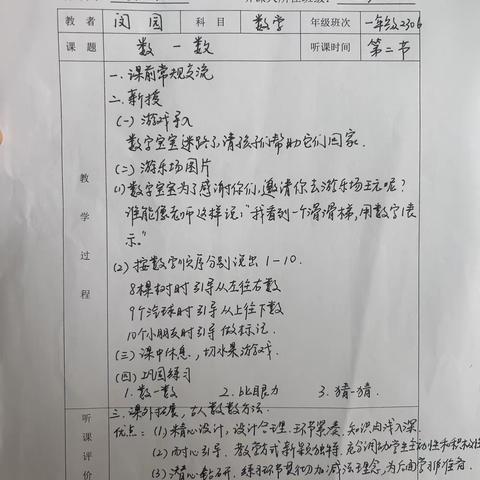 教者 闵园 科目 数学 年级班次 一年级2306
课题 数一数 听课时间 第二节
教学过程
一.课前常规交流
二.新授
(一)游戏导入
数字宝宝迷路了,请孩子们帮助它们回家.
(二)游乐场图片
(1)数字宝宝为了感谢你们,邀请你去游乐场玩呢?
谁能像老师这样说:"我看到一个滑滑梯,用数字1表
示."
(2)按数字顺序分别说出1-10.
8棵树时引导从左往右数
9个汽球时引导从上往下数
10个小朋友时引导做标记.
(三)课中休息,切水果游戏.
(四)巩固练习
1.数一数 2.比眼力 3.猜一猜.
三.课外拓展,古人数数方法.
听课评价
优点:(1)精心设计,设计合理.环节紧凑.知识由浅入深.
(2)耐心引导.教学方式新颖独特.充分调动学生主动性和积极性
(3)潜心钻研.练习环节贯彻加减法理念,为后面学习作准备.